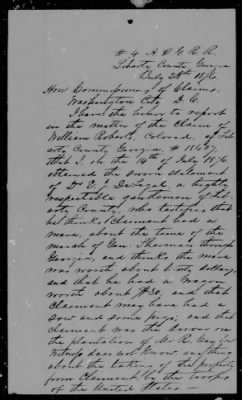 # 4 A & G R R
Liberty County, Georgia
July 28th 1876.
Hon. Commissioners of Claims,
Washington City D. C.
I have the honor to report
in the matter of the Claim of
William Roberts, Colored, of Lib-
erty County Georgia,
that I on the 14th of July 1876
obtained the sworn statement
of Dr a highly
respectable gentleman of Lib-
erty County, who testifies that
he thinks Claimant had a
mare, about the time of the
march of Gen. Sherman through
Georgia, and thinks the mare
was worth about dollars,
and that he had a wagon
worth about and that
Claimant may have had a
sow and some pigs; and that
claimant was the driver on
the plantation of Mr
Witness does not know anything
about the taking of the property
from Claimant by the troops
of the United States —